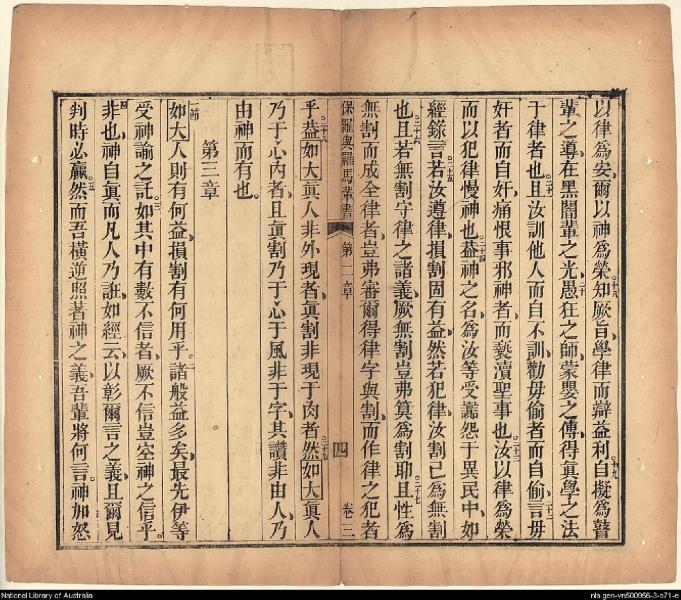 以律爲安爾以神爲榮知厥旨學律而辯益利自擬爲瞽
輩之導在黑闇輩之光愚狂之師蒙嬰之傅得眞學之法
于律者也且汝訓他人而自不訓勸毋偷者而自偷言毋
奸者而自奸痛恨事邪神者而褻瀆聖事也汝以律爲榮
而以犯律慢神也葢神之名爲汝等受讟怨于異民中如
經錄言若汝遵律損割固有益然若犯律汝割已爲無割
也且若無割守律之諸義厥無割豈弗算爲割耶且性爲
無割而成全律者豈弗審爾得律字與割而作律之犯者
保羅與羅馬輩書 第二章 四 卷三
乎葢如大眞人非外現者眞割非現于肉者然如大眞人
乃于心內者且眞割乃于心于風非于字其讚非由人乃
由神而有也
第三章
如大人則有何益損割有何用乎諸般益多矣最先伊等
受神諭之託如其中有數不信者厥不信豈空神之信乎
非也神自眞而凡人乃誑如經云以彰爾言之義且爾見
判時必贏然而吾橫逆照著神之義吾輩將何言神加怒
National Library of Australia
nla.gen-vn500956-3-s71-e